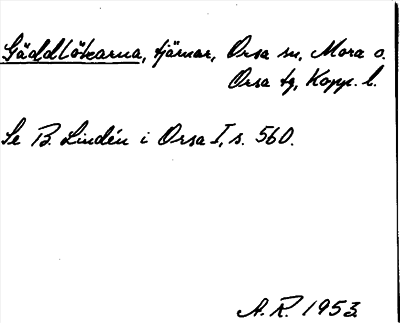 Gäddlökarna, tjärnar, Orsa sn, Mora o.
Orsa tg, Kopp. l.
Se B. Lindén i Orsa I, s. 560.
A. R. 1953.